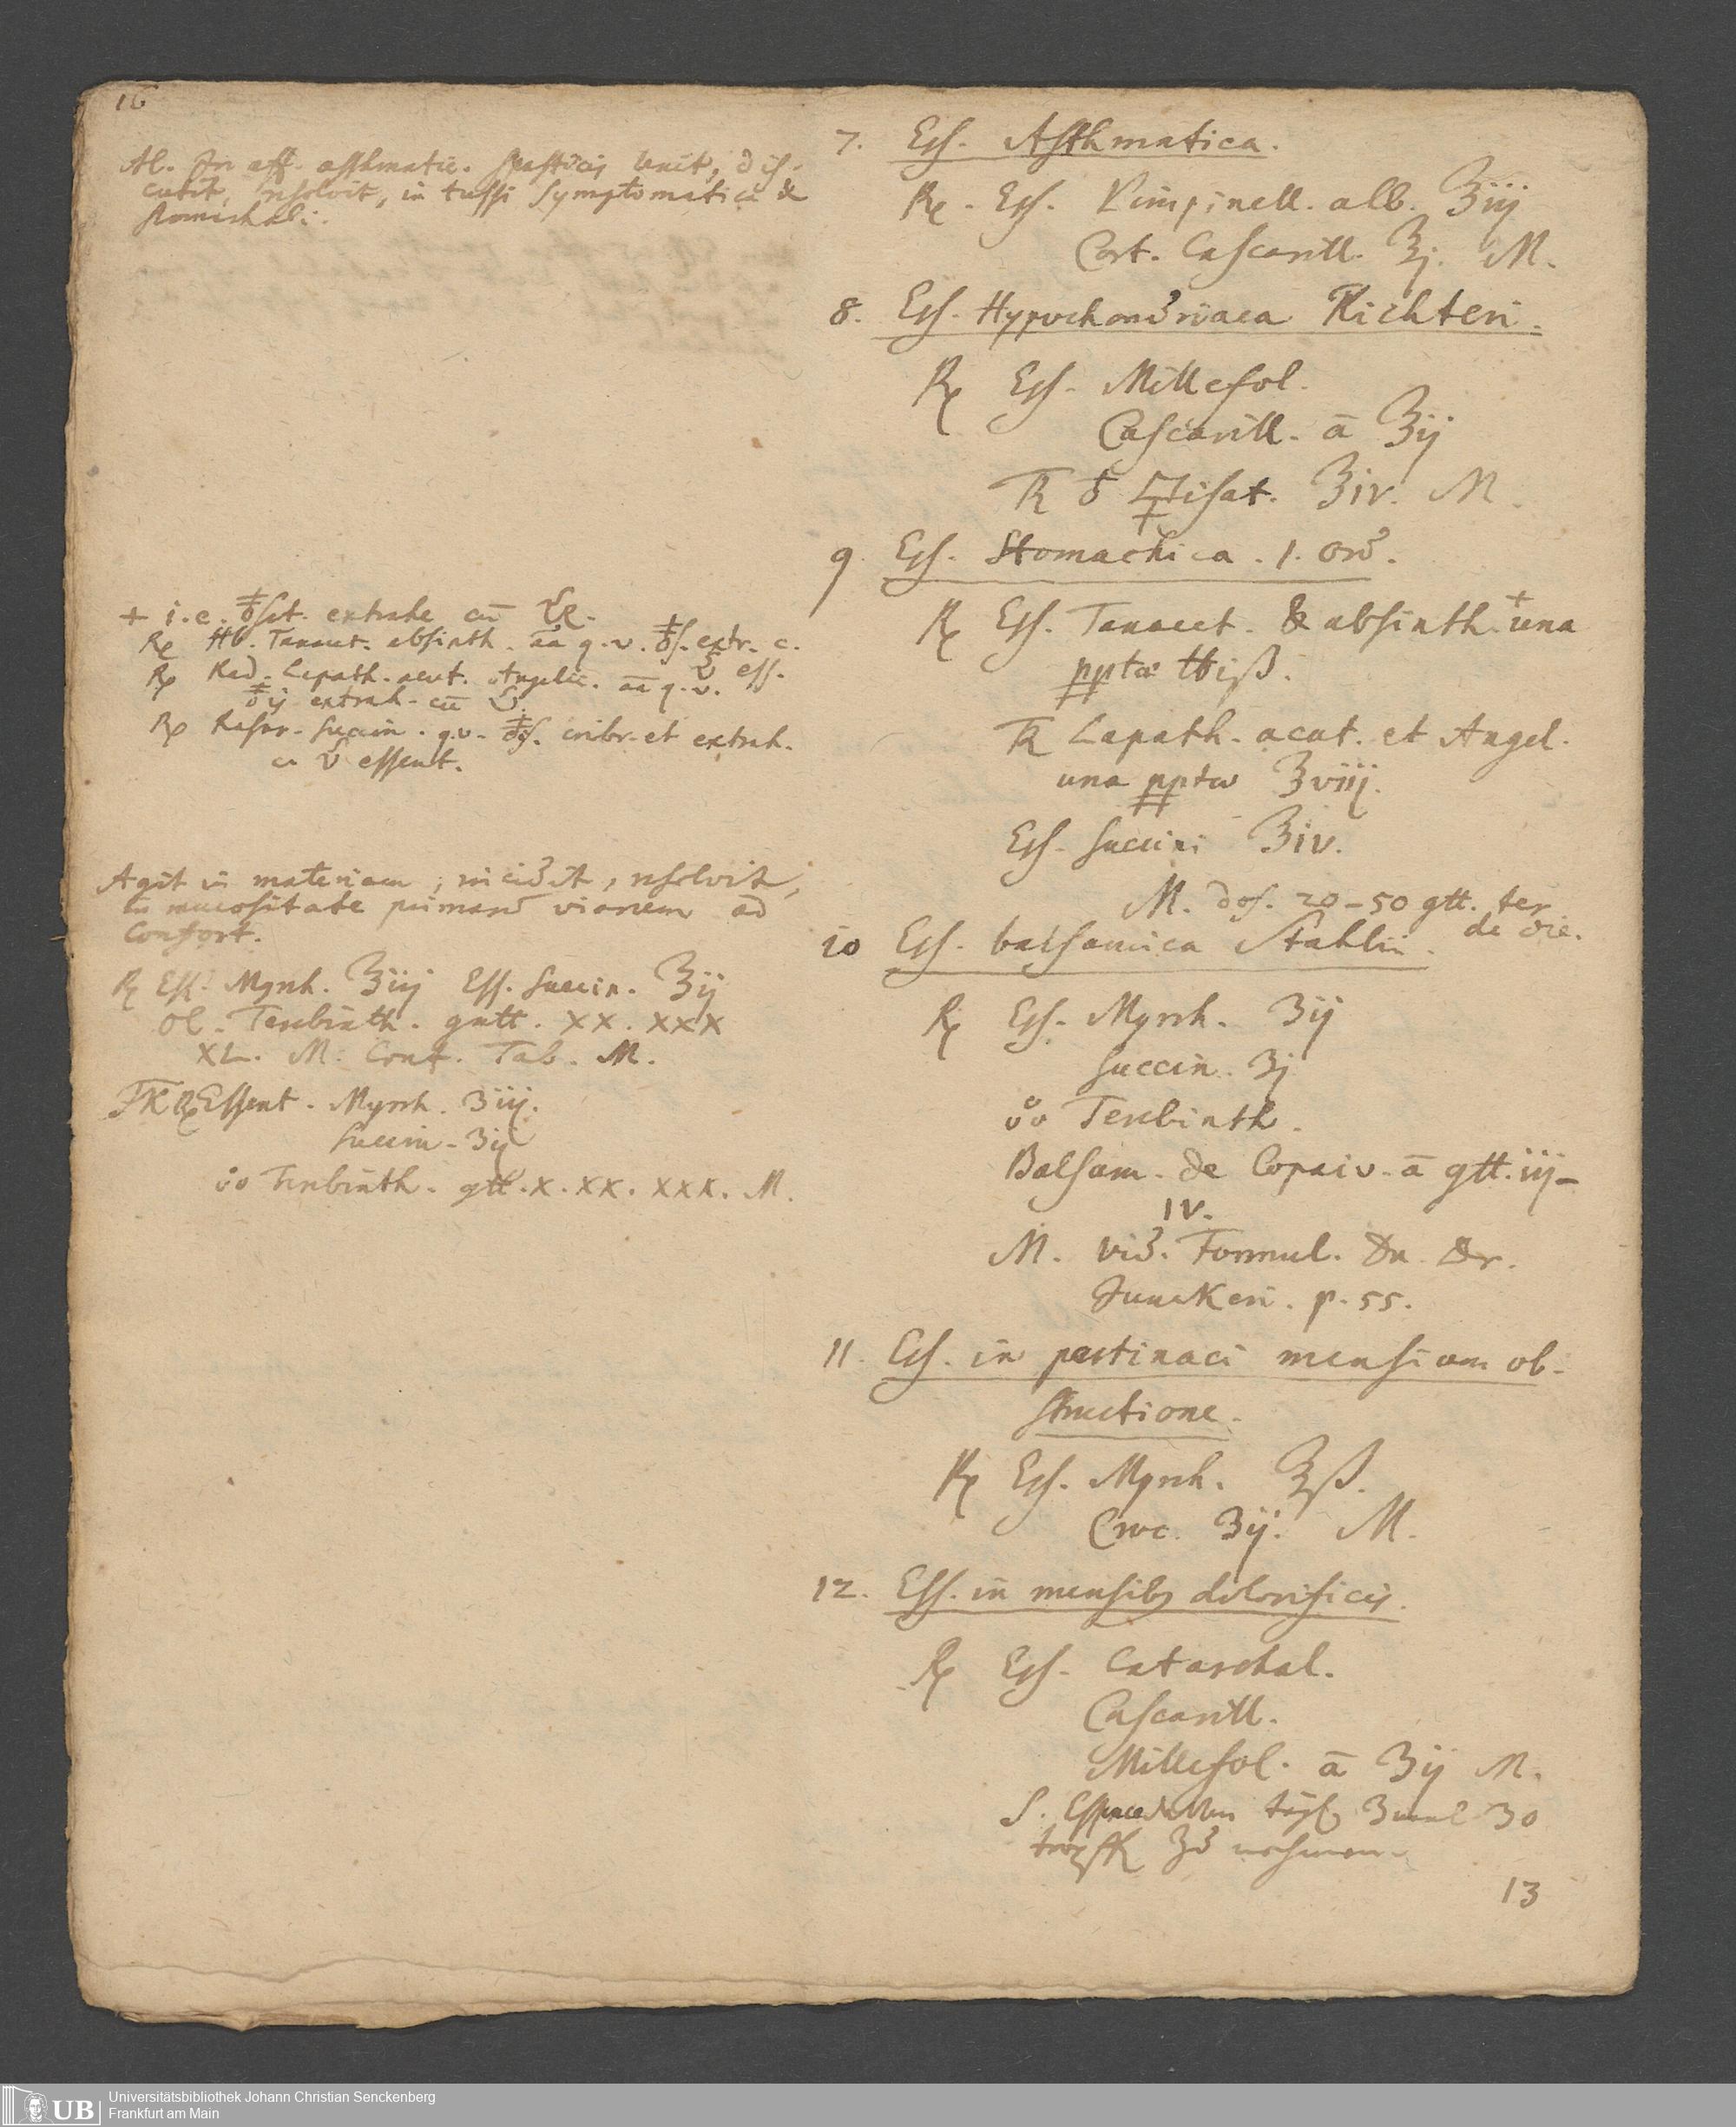 16
Al. In aff. asthmatic. spasticis lenit, dis-
cutit, resolvit, in tussi symptomatica &
stomachali.
+ i.e. extrahe cū
℞ Hb. Tanacet. absinth. āā q.v. extr. c.
ess.
℞ Rad. Lapath. acut. Angelic. āā q.v.
extrah. cū
℞ Rasur. succin. q.v. cribr. et extrah.
essent.
Agit in materiam, incidit, resolvit,
in mucositate primarū viarum ad
Confort.
℞ Ess. Myrrh. ℥iij Ess. Succin. ℥ij
Ol. Terebinth. gutt. XX. XXX
XL. M. Conf. Tab. M.
℞ Essent. Myrrh. ʒiij.
Succin. ʒij
Terebinth. gtt. X. XX. XXX. M.
7. Eſſ. Asthmatica.
℞. Eſſ. Pimpinell. alb. ℥iij
Cort. Cascarill. ℥j. M.
8. Eſſ. Hypochondriaca Richteri.
℞ Eſſ. Millefol.
Cascarill. ā ℥ij
℥iv. M.
9. Eſſ. Stomachica. 1. ord.
℞ Eſſ. Tanacet. & absinth. + una
pptæ ℔iß.
Lapath. acut. et Angel.
una ppta ℥viij.
Eſſ. Succini ℥iv.
M. dos. 20–50 gtt. ter
de die.
10 Eſſ. balsamica Stahlii.
℞ Eſſ. Myrrh. ʒij
Succin. ʒj
Terebinth.
Balsam. de Copaiv. ā gtt. iij–
IV.
M. vid. Formul. Dn. Dr.
Junckeri. p. 55.
11. Eſſ. in pertinaci mensium ob-
structione.
℞ Eſſ. Myrrh. ℥ß.
Croc. ʒij. M.
12. Eſſ. in mensibꝫ dolorificis.
℞ Eſſ. Catarrhal.
Cascarill.
Millefol. ā ʒij M.
S. 3 mal 30
nehmen.
13
Universitätsbibliothek Johann Christian Senckenberg
UB
Frankfurt am Main